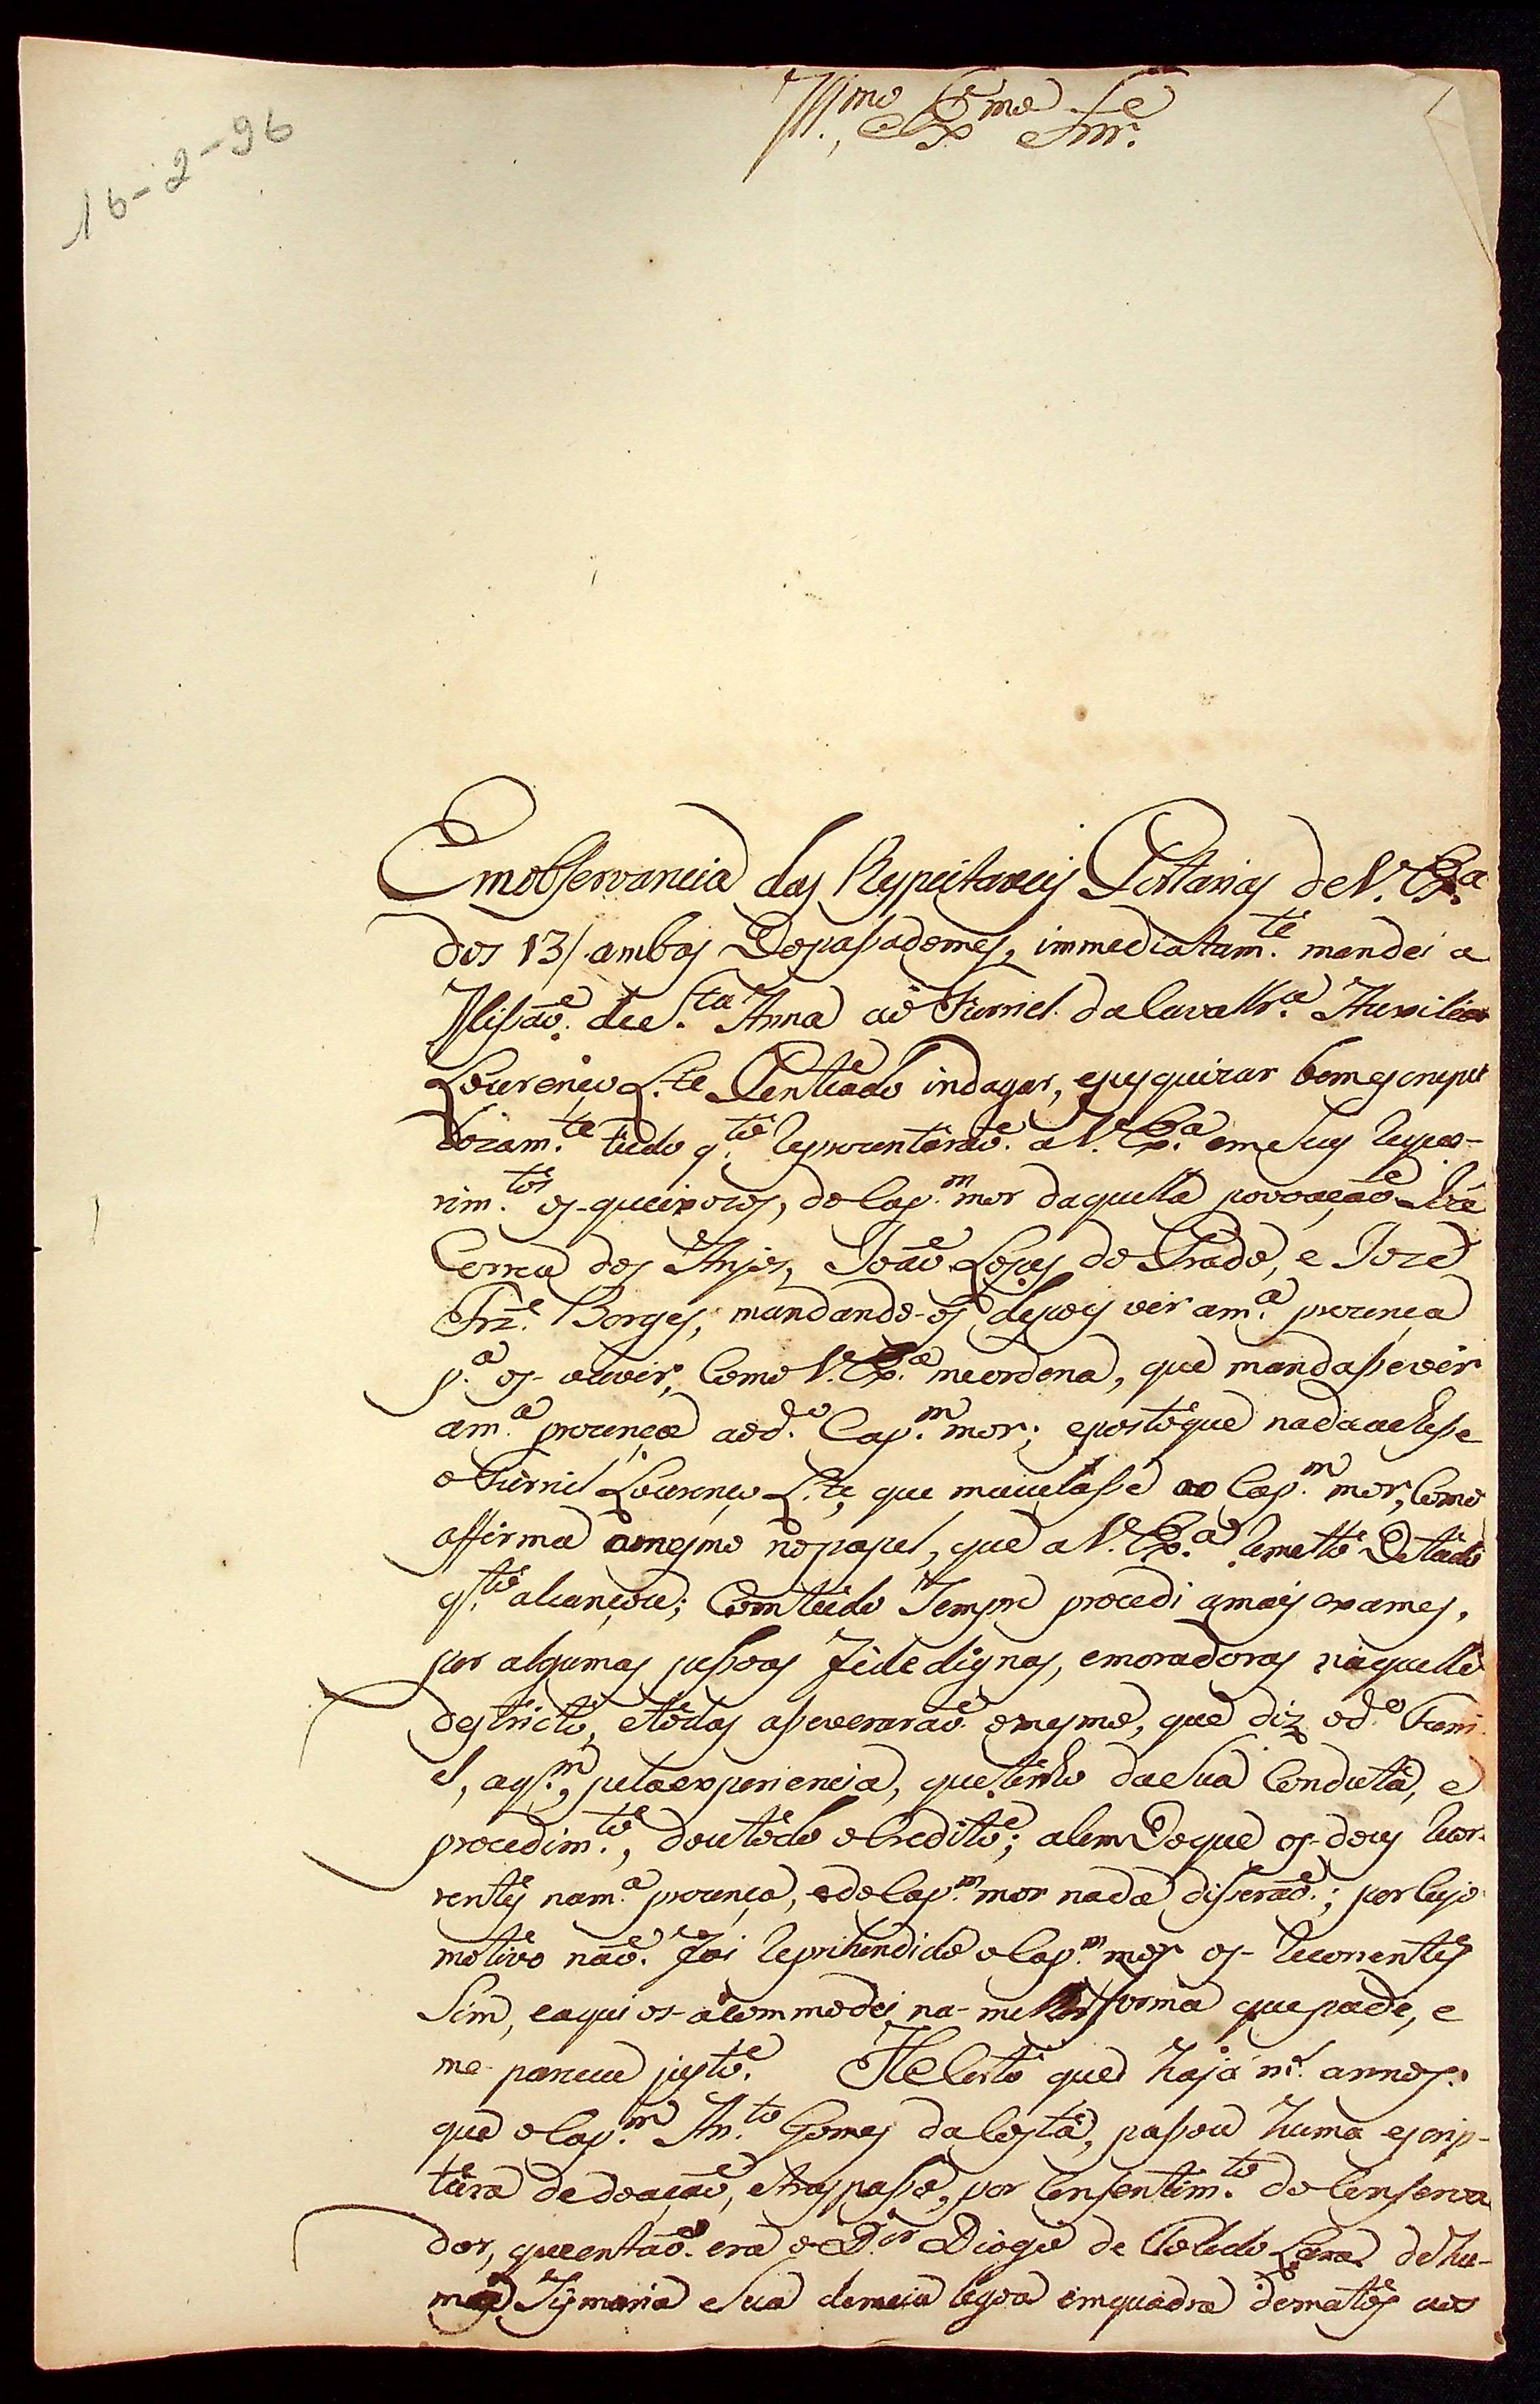 16-2-96
Ill.mo e Ex.mo Snr.
Em observancia das Respeitaveis Portarias de V. Ex.a
dos 13/ ambas do passado mes, immediatam.te mandei a
de S.ta Anna ao Furriel da Cavallr.a Auxiliar
Lourenço L.te Penteado indagar, e pesquizar bem escrupu
lozam.te tudo q.to reprezentaraõ a V. Ex.a em seus reque-
rim.tos os queixozos, do Cap.m mor daquella povoaçaõ
Correa dos Anjos, Joaõ Lopes do Prado, e Jozé
Frz.e Borges, mandando-os depois vir a m.a prezença
p.a os ouvir, como V. Ex.a me ordena, que mandasse vir
a m.a prezença ao d.o Cap.m mor; e posto que nada achasse
o Furriel Lourenço L.te, que maculasse ao Cap.m mor, como
affirma o mesmo no papel, que a V. Ex.a remetto de tudo
q.to alcançou; Com tudo sempre procedi a mais exames,
por algumas pessoas fidedignas, e moradoras naquelle
destricto, e todas asseveraraõ o mesmo, que diz o d.o Furri
el, a q.m, pela experiencia, que tenho da sua Conduta, e
procedim.to, dou todo o Credito; alem do que os dous recor-
rentes na m.a prezença, e do Cap.m mor nada disseraõ; por cujo
motivo naõ foi reprihendido o Cap.m mor os recorrentes
Sim, e aqui os acommodei na melhor forma que pude, e
me pareceu justo. He certo que haja m.s annos
que o Cap.m An.to Gomes da Costa, passou huma escrip-
tura de doaçaõ, e traspasso, por consentim.to do conserva
dor, que entaõ era o D.or Diogo de Toledo Lara de hu-
ma Sismaria sua de meia legoa em quadra de matos aos